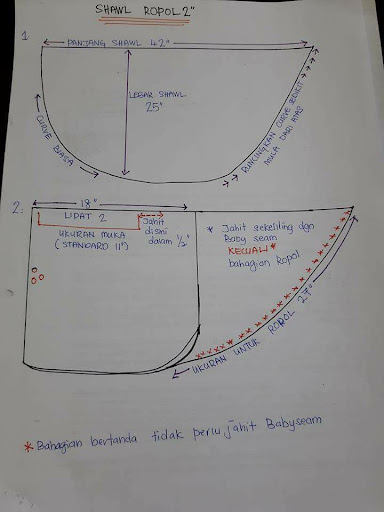 SHAWL ROPOL 2"
1.
PANJANG SHAWL 42"
LEBAR SHAWL
25"
CURVE BIASA
RUNCINGKAN CURVE SEDIKIT
MULA DARI ATAS
2.
18"
LIPAT 2
UKURAN MUKA
(STANDARD 11")
Jahit
disini
dalam 1/2"
* Jahit sekeliling dgn
Baby seam
KECUALI *
bahagian Ropol
UKURAN UNTUK ROPOL 27"
* Bahagian bertanda tidak perlu jahit Babyseam